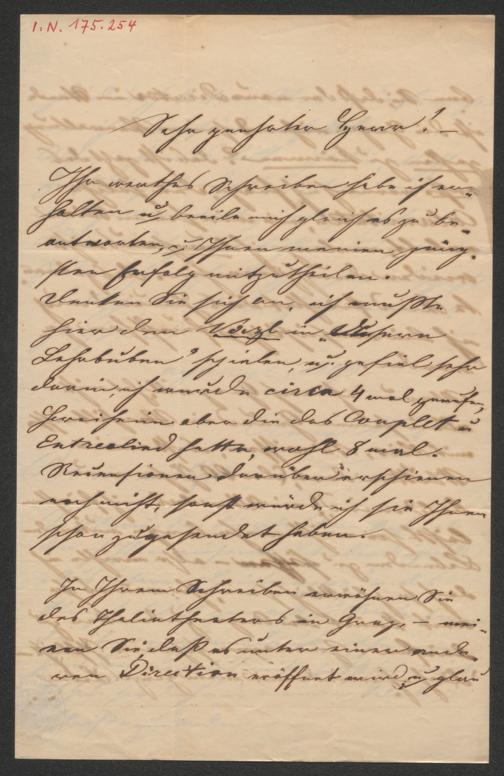 I. N. 175.254
Sehr geehrter Herr! –
Ihr werthes Schreiben habe ich er-
halten u beeile mich gleich es zu be-
antworten, u Ihnen meinen jüng-
sten Erfolg mitzutheilen.
Denken Sie sich an, ich mußte
hier den in "Unsere
Lehrbuben" spielen, u. gefiel sehr
darin, ich wurde circa 4 mal gerufen,
aber die das Couplet u
Entreelied hatte, wohl 8 mal.
Recensionen darüber erschienen
noch nicht, sonst würde ich sie Ihnen
schon zugesendet haben.
In Ihrem Schreiben erwähnen Sie
des Thaliatheaters in Graz, – mei-
nen Sie daß es unter einer ande-
ren Direction eröffnet wird, u glau